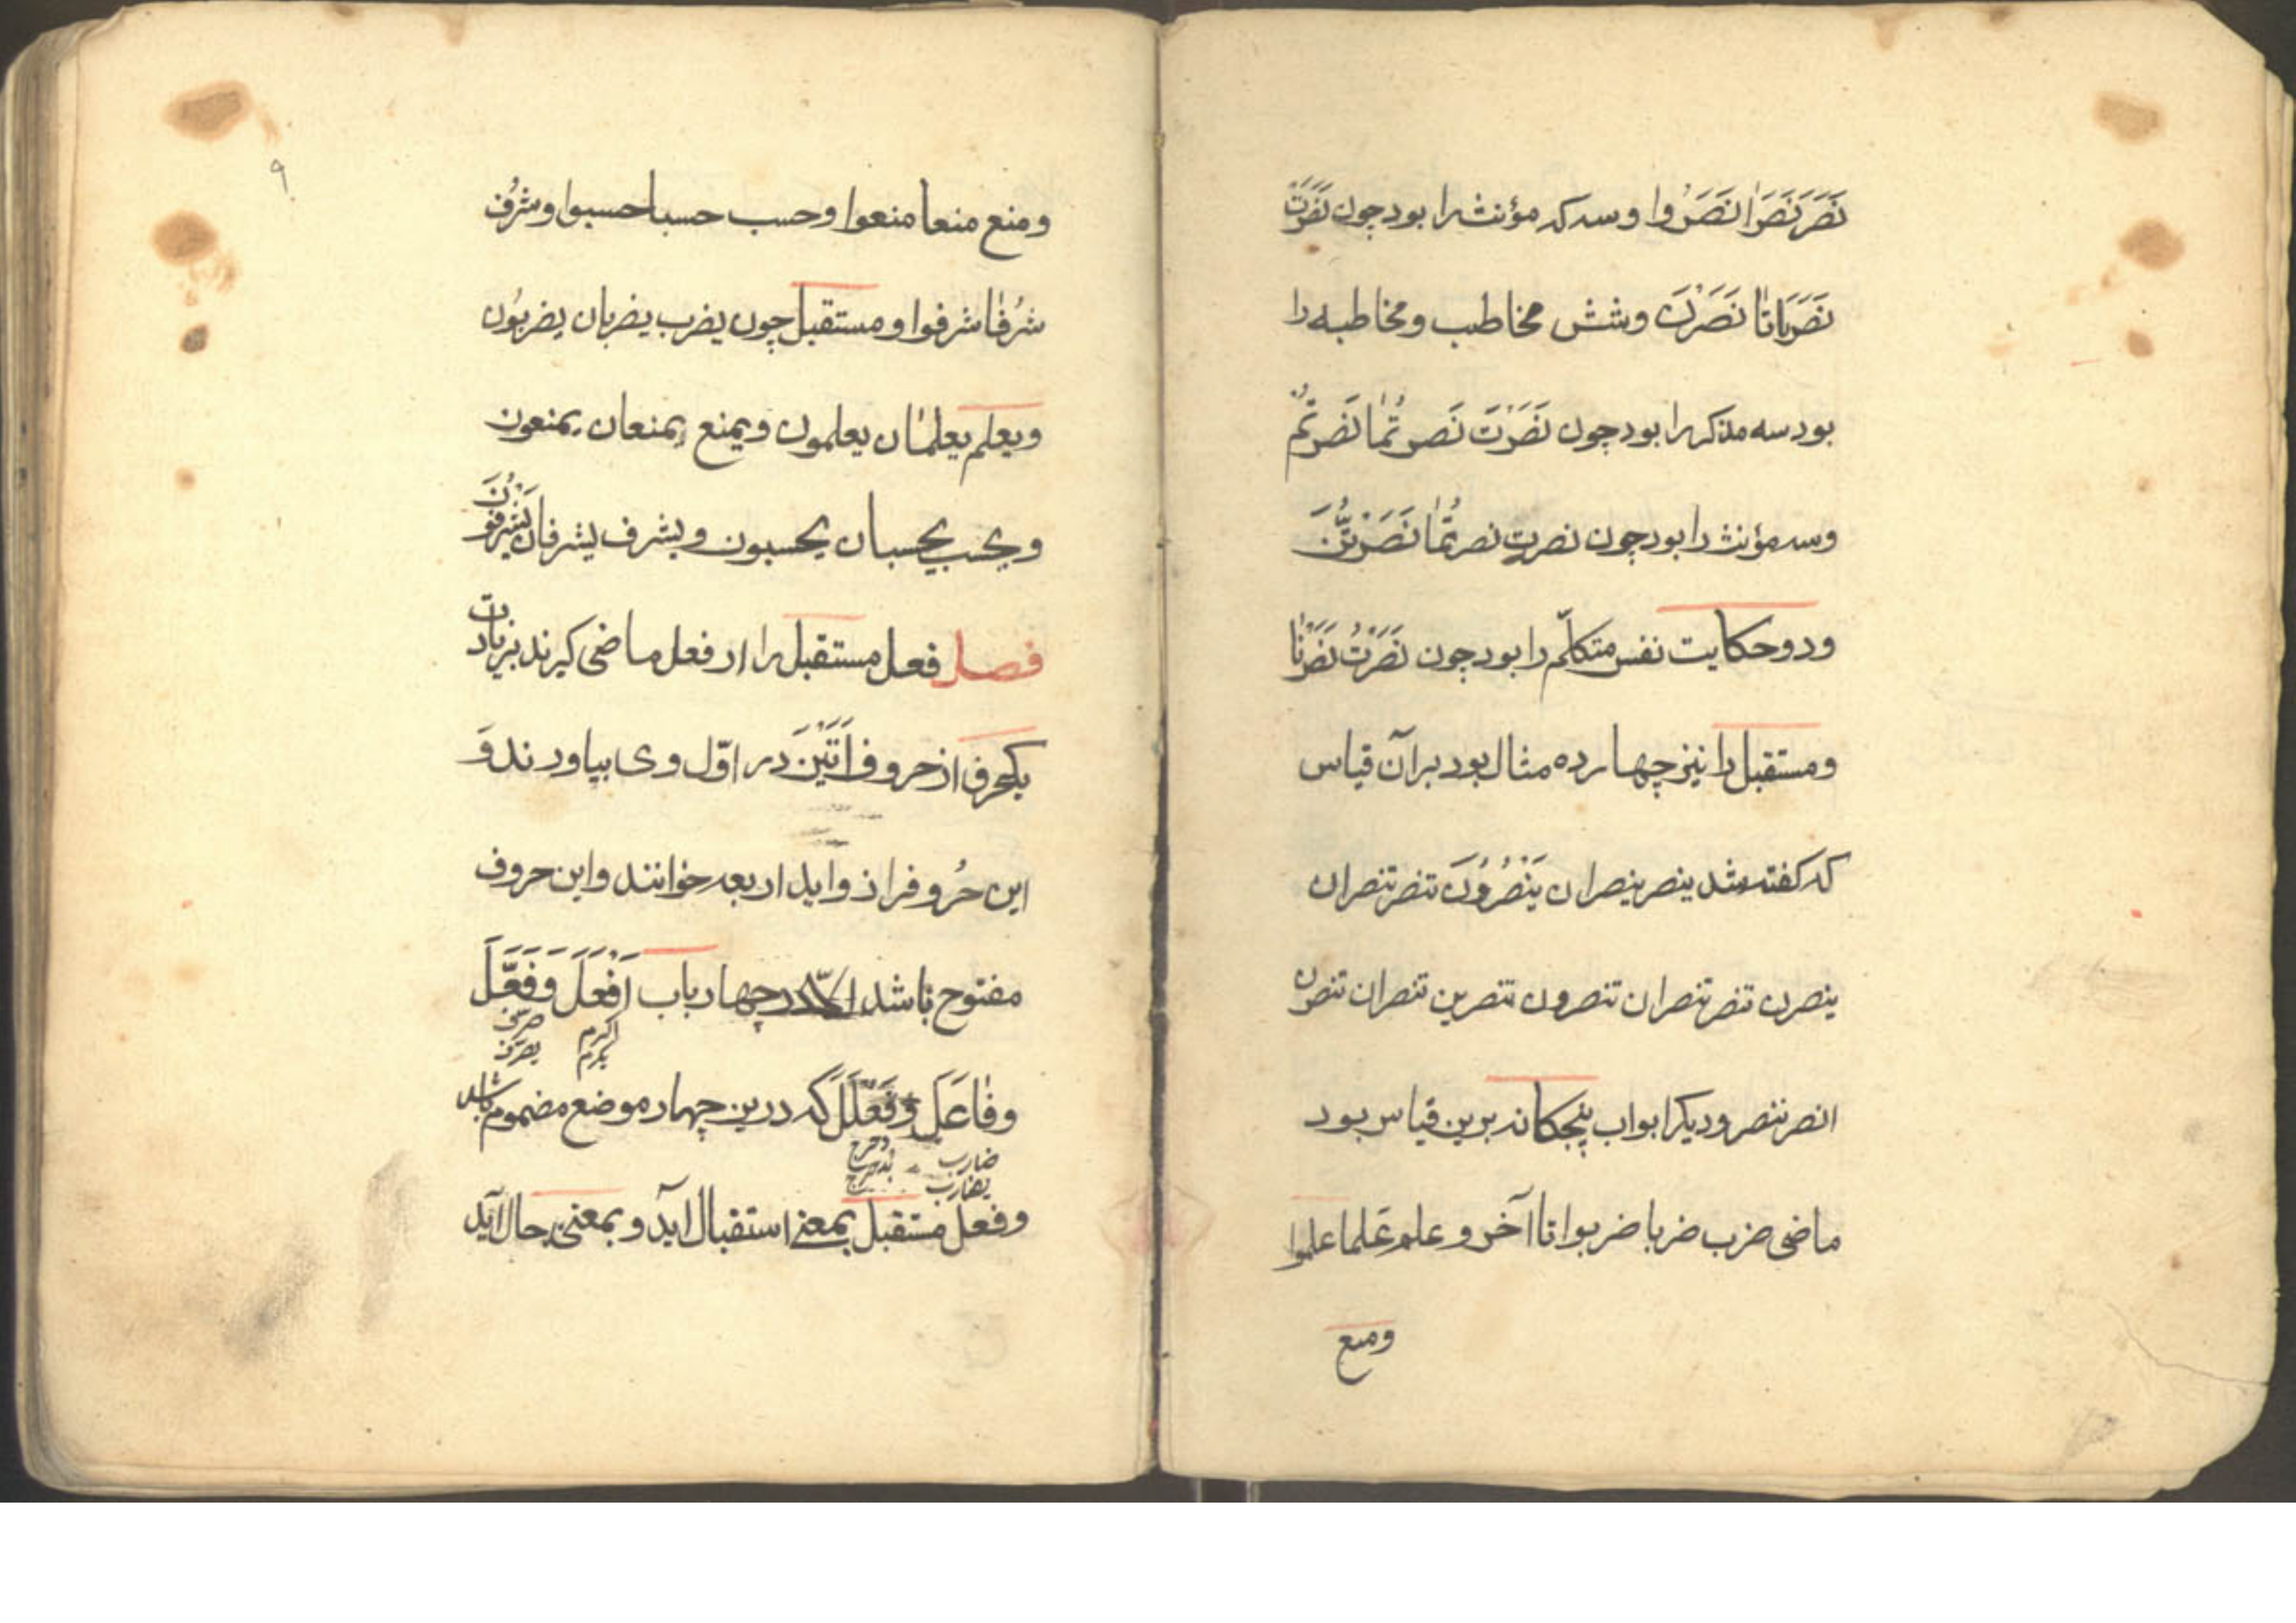 نَصَرَ نَصَرَا نَصَرُوا وسه که مؤنث را بود چون نَصَرَتْ
نَصَرَتَا نَصَرْنَ وشش مخاطب ومخاطبه را
بود سه مذکر را بود چون نَصَرْتَ نَصَرتُمَا نَصَرتُمْ
وسه مؤنث را بود چون نصرتِ نصرتُمَا نَصَرْتُنَّ
ودو حکایت نفس متکلّم را بود چون نَصَرْتُ نَصَرْنَا
ومستقبل را نیز چهارده مثال بود برآن قیاس
که کفته شد ینصر ینصران یَنْصُرُونَ تنصر تنصران
ینصرن تنصر تنصران تنصرون تنصرین تنصران تنصرن
انصر ننصر ودیکر ابواب پنجکانه برین قیاس بود
ماضی ضرب ضربا ضربوا تا آخر وعلم عَلما علموا
ومنع
۹
ومنع منعا منعوا وحسب حسبا حسبوا وشرُف
شرُفَا شرفوا ومستقبل چون یضرب یضربان یضربُون
ویعلم یعلمَان یعلمون ویمنع یمنعان یمنعون
ویحسب یحسبان یحسبون ویشرف یشرفان یَشْرفُونَ
فصل فعل مستقبل را از فعل ماضی کیرند بزیادت
یکحرف از حروف اَتَیْنَ در اوّل وی بیاورند وَ
این حُروفرا زواید اربعه خوانند واین حروف
مفتوح باشد الّا در چهار باب اَفْعَلَ وَفَعَّلَ
اکرم یکرم
صرّف یصرّف
وفَاعَلَ وفَعْلَلَ که درین چهار موضع مضموم باشد
ضارب یضارب
دحرج یدحرج
وفعل مستقبل بمعنی استقبال آید وبمعنی حال آید